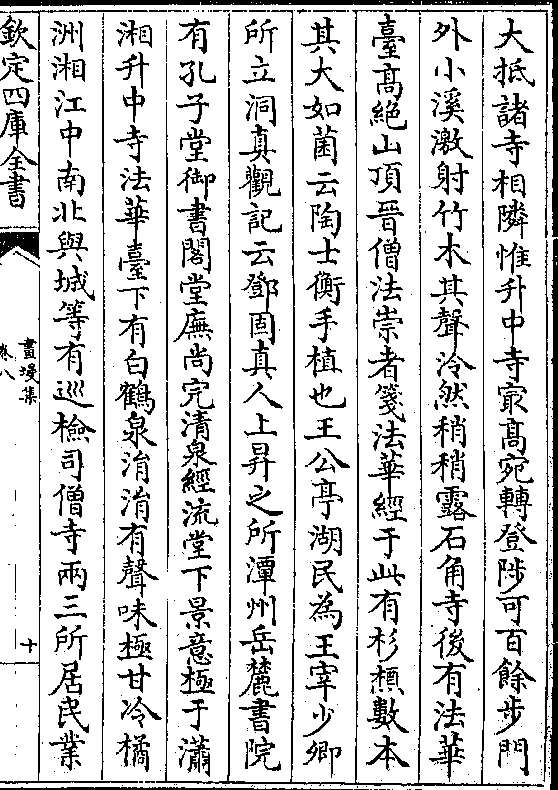 大抵諸寺相隣惟升中寺㝡髙宛轉登陟可百餘步門
外小溪激射竹木其聲泠然稍稍露石角寺後有法華
臺髙絶山頂晉僧法崇者箋法華經于此有杉櫃數本
其大如菌云陶士衡手植也王公亭湖民為王宰少卿
所立洞真觀記云鄧固真人上昇之所潭州岳麓書院
有孔子堂御書閣堂廡尚完清泉經流堂下景意極于瀟
湘升中寺法華臺下有白鶴泉涓涓有聲味極甘冷橘
洲湘江中南北與城等有巡檢司僧寺兩三所居民業
欽定四庫全書
畫墁集
卷八
十